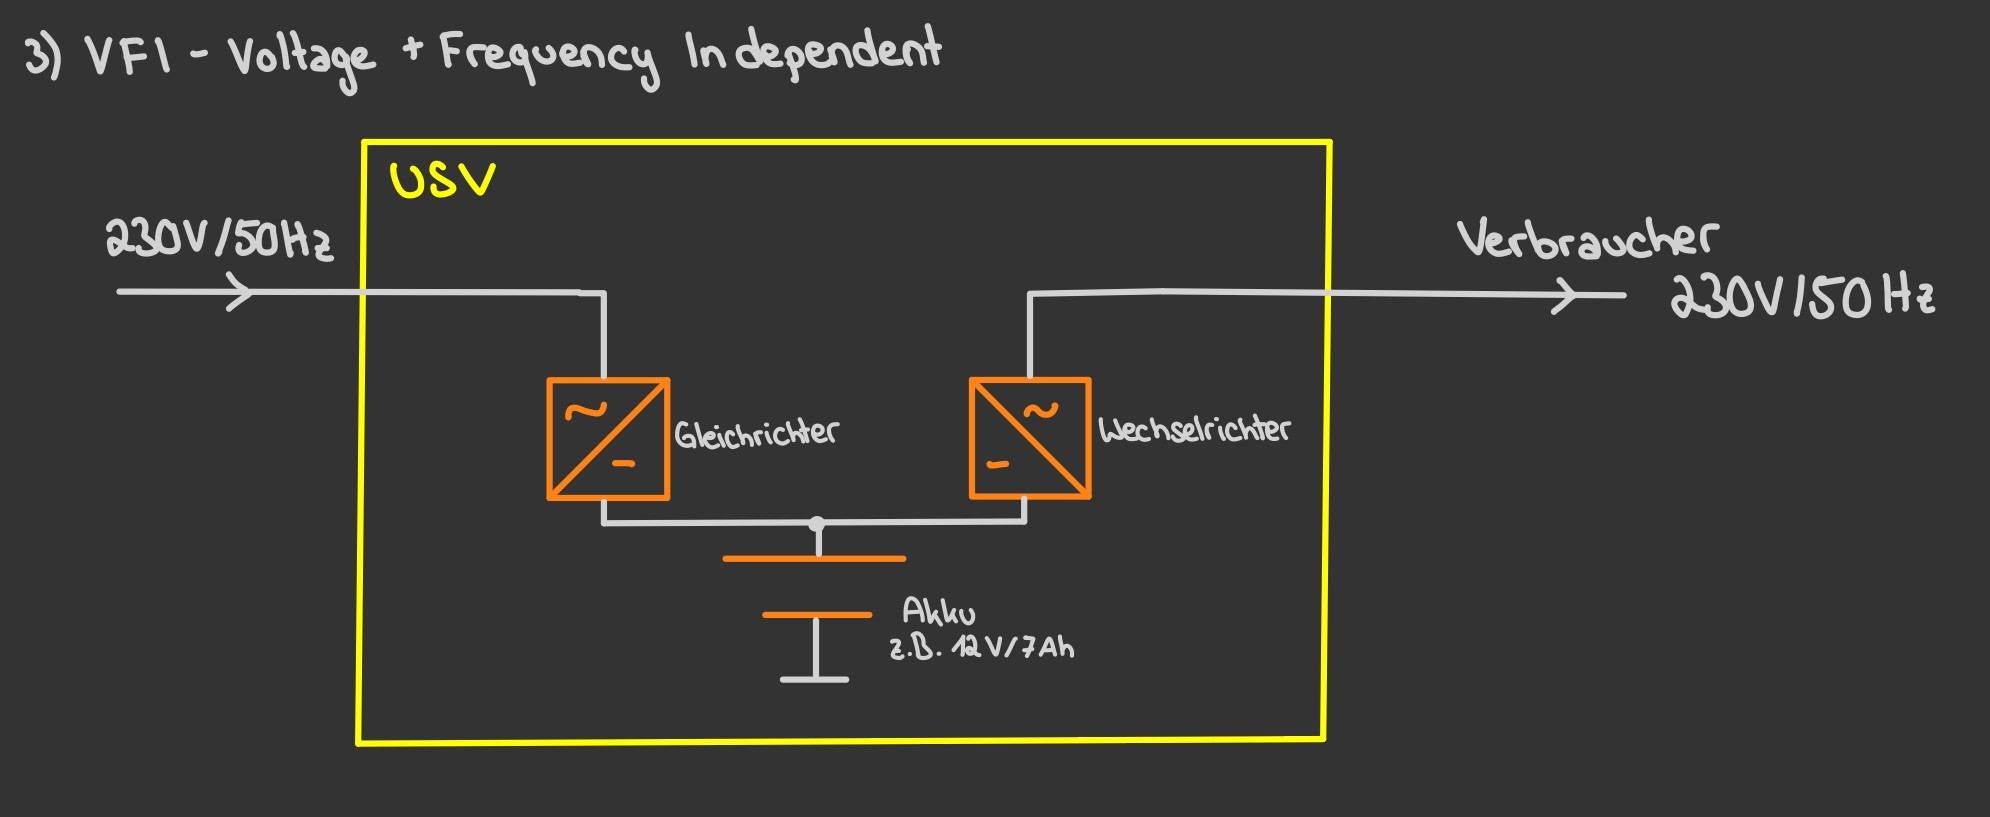 3) VFI - Voltage + Frequency Independent
USV
230V/50Hz
Verbraucher
230V/50Hz
~
-
Gleichrichter
~
-
Wechselrichter
Akku
z.B. 12V/7Ah